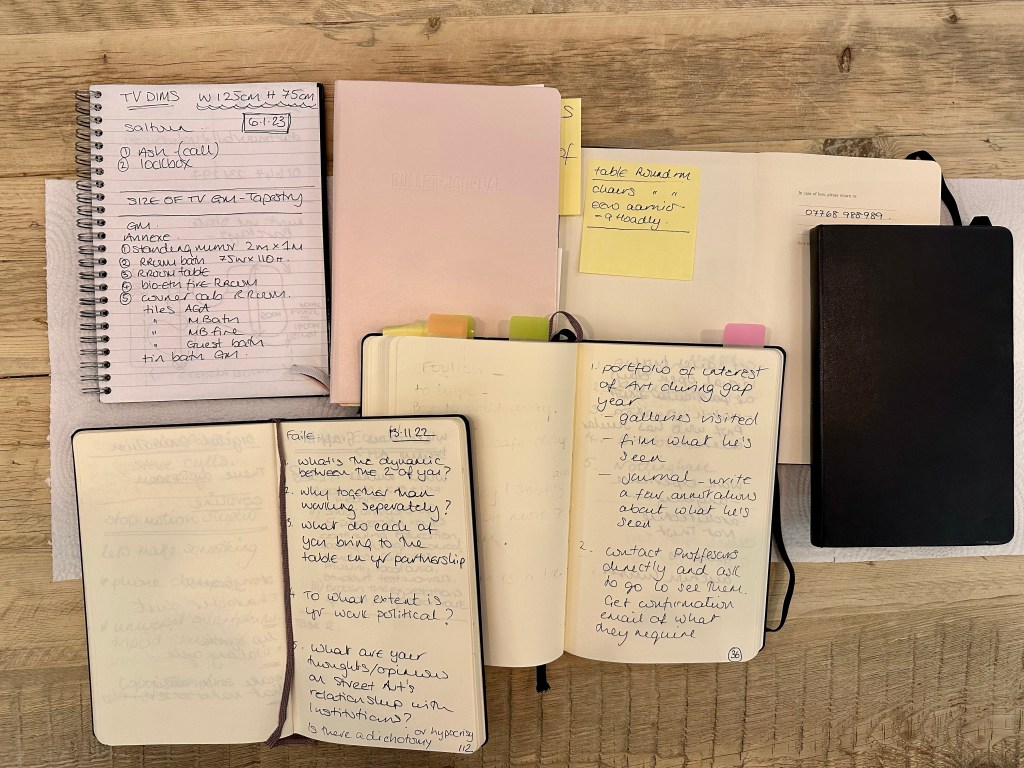 TV DIMS W 125cm H 75cm
6.1.23
① Ash (call)
② lockbox
SIZE OF TV GM - Tapestry
GM
Annexe
① standing mirror 2m x 1m
② RROOM bath 75W x 110 H.
③ RROOM table
④ bio-eth fire RROOM
⑤ corner cab RROOM.
tiles AGA
" M Bath
" MB fire
" Guest bath
tin bath GM.
BULLET JOURNAL
S
of
table Round rm
chairs " "
- 9 Hoadly.
In case of loss, please return to:
07768 988989
Faile 13.11.22
1. What's the dynamic
between the 2 of you?
2. Why together than
working seperately?
3. What do each of
you bring to the
table in yr partnership
4. To what extent is
yr work political?
5. What are your
thoughts/opinions
on street Art's
relationship with
Institutions?
or hypocrisy
Is there a dichotomy
112
1. portfolio of interest
of Art during gap
year
- galleries visited
- film what he's
seen
- Journal - write
a few annotations
about what he's
seen
2. contact Proffesors
directly and ask
to go to see them.
Get confirmation
email of what
they require
36